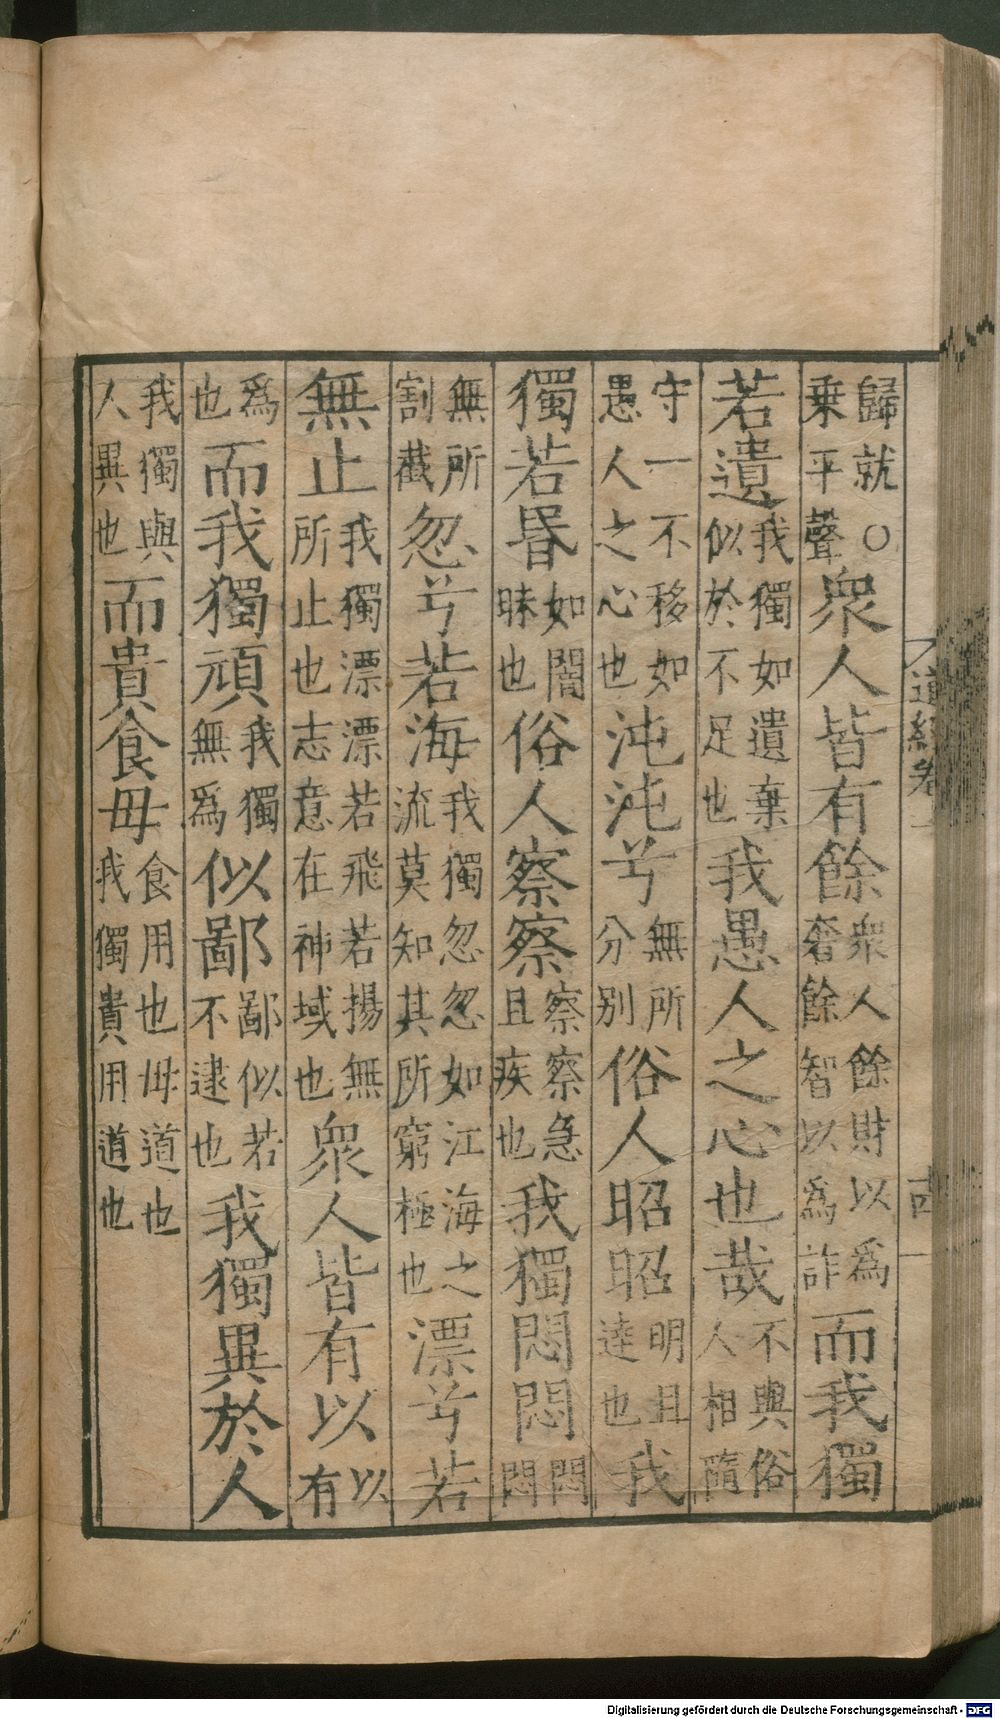 道經卷 十四
歸就○乗平聲衆人皆有餘衆人餘財以為奢餘智以為詐而我獨
若遺我獨如遺棄似於不足也我愚人之心也哉不與俗人相隨
守一不移如愚人之心也沌沌兮無所分別俗人昭昭明且達也我
獨若昬如闇昧也俗人察察察察急且疾也我獨悶悶悶悶
無所割截忽兮若海我獨忽忽如江海之流莫知其所窮極也漂兮若
無止我獨漂漂若飛若揚無所止也志意在神域也衆人皆有以以有
爲也而我獨頑我獨無爲似鄙鄙似若不逮也我獨異於人
我獨與人異也而貴食母食用也母道也我獨貴用道也
Digitalisierung gefördert durch die Deutsche Forschungsgemeinschaft - DFG